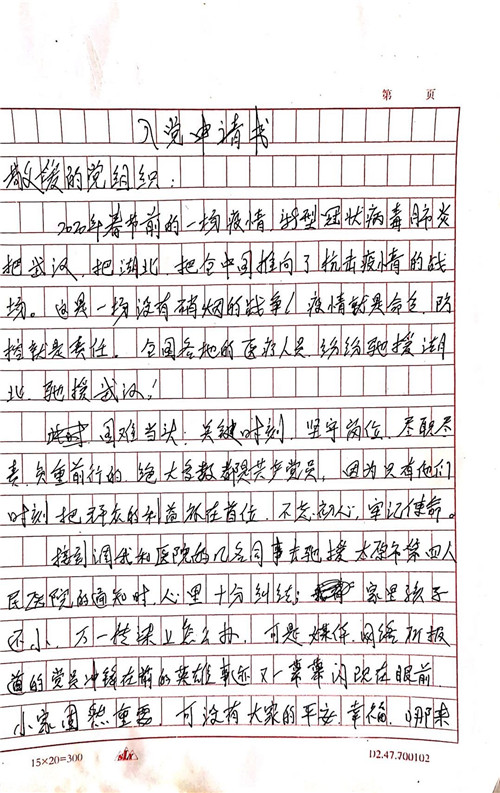 第 页
入党申请书
敬爱的党组织：
2020年春节前的一场疫情，新型冠状病毒肺炎
把武汉，把湖北，把全中国推向了抗击疫情的战
场。这是一场没有硝烟的战争！疫情就是命令，防
控就是责任。全国各地的医疗人员，纷纷驰援湖
北，驰援武汉！
困难当头，关键时刻，坚守岗位，尽职尽
责，负重前行的，绝大多数都是共产党员，因为只有他们
时刻把群众的利益放在首位，不忘初心，牢记使命。
接到调我和医院的几名同事去驰援太原市第四人
民医院的通知时，心里十分纠结；家里孩子
还小，万一传染上怎么办，可是媒体，网络所报
道的党员冲锋在前的英雄事迹又一幕幕闪现在眼前
小家固然重要，可没有大家的平安，幸福，哪来
15×20=300
D2.47.700102